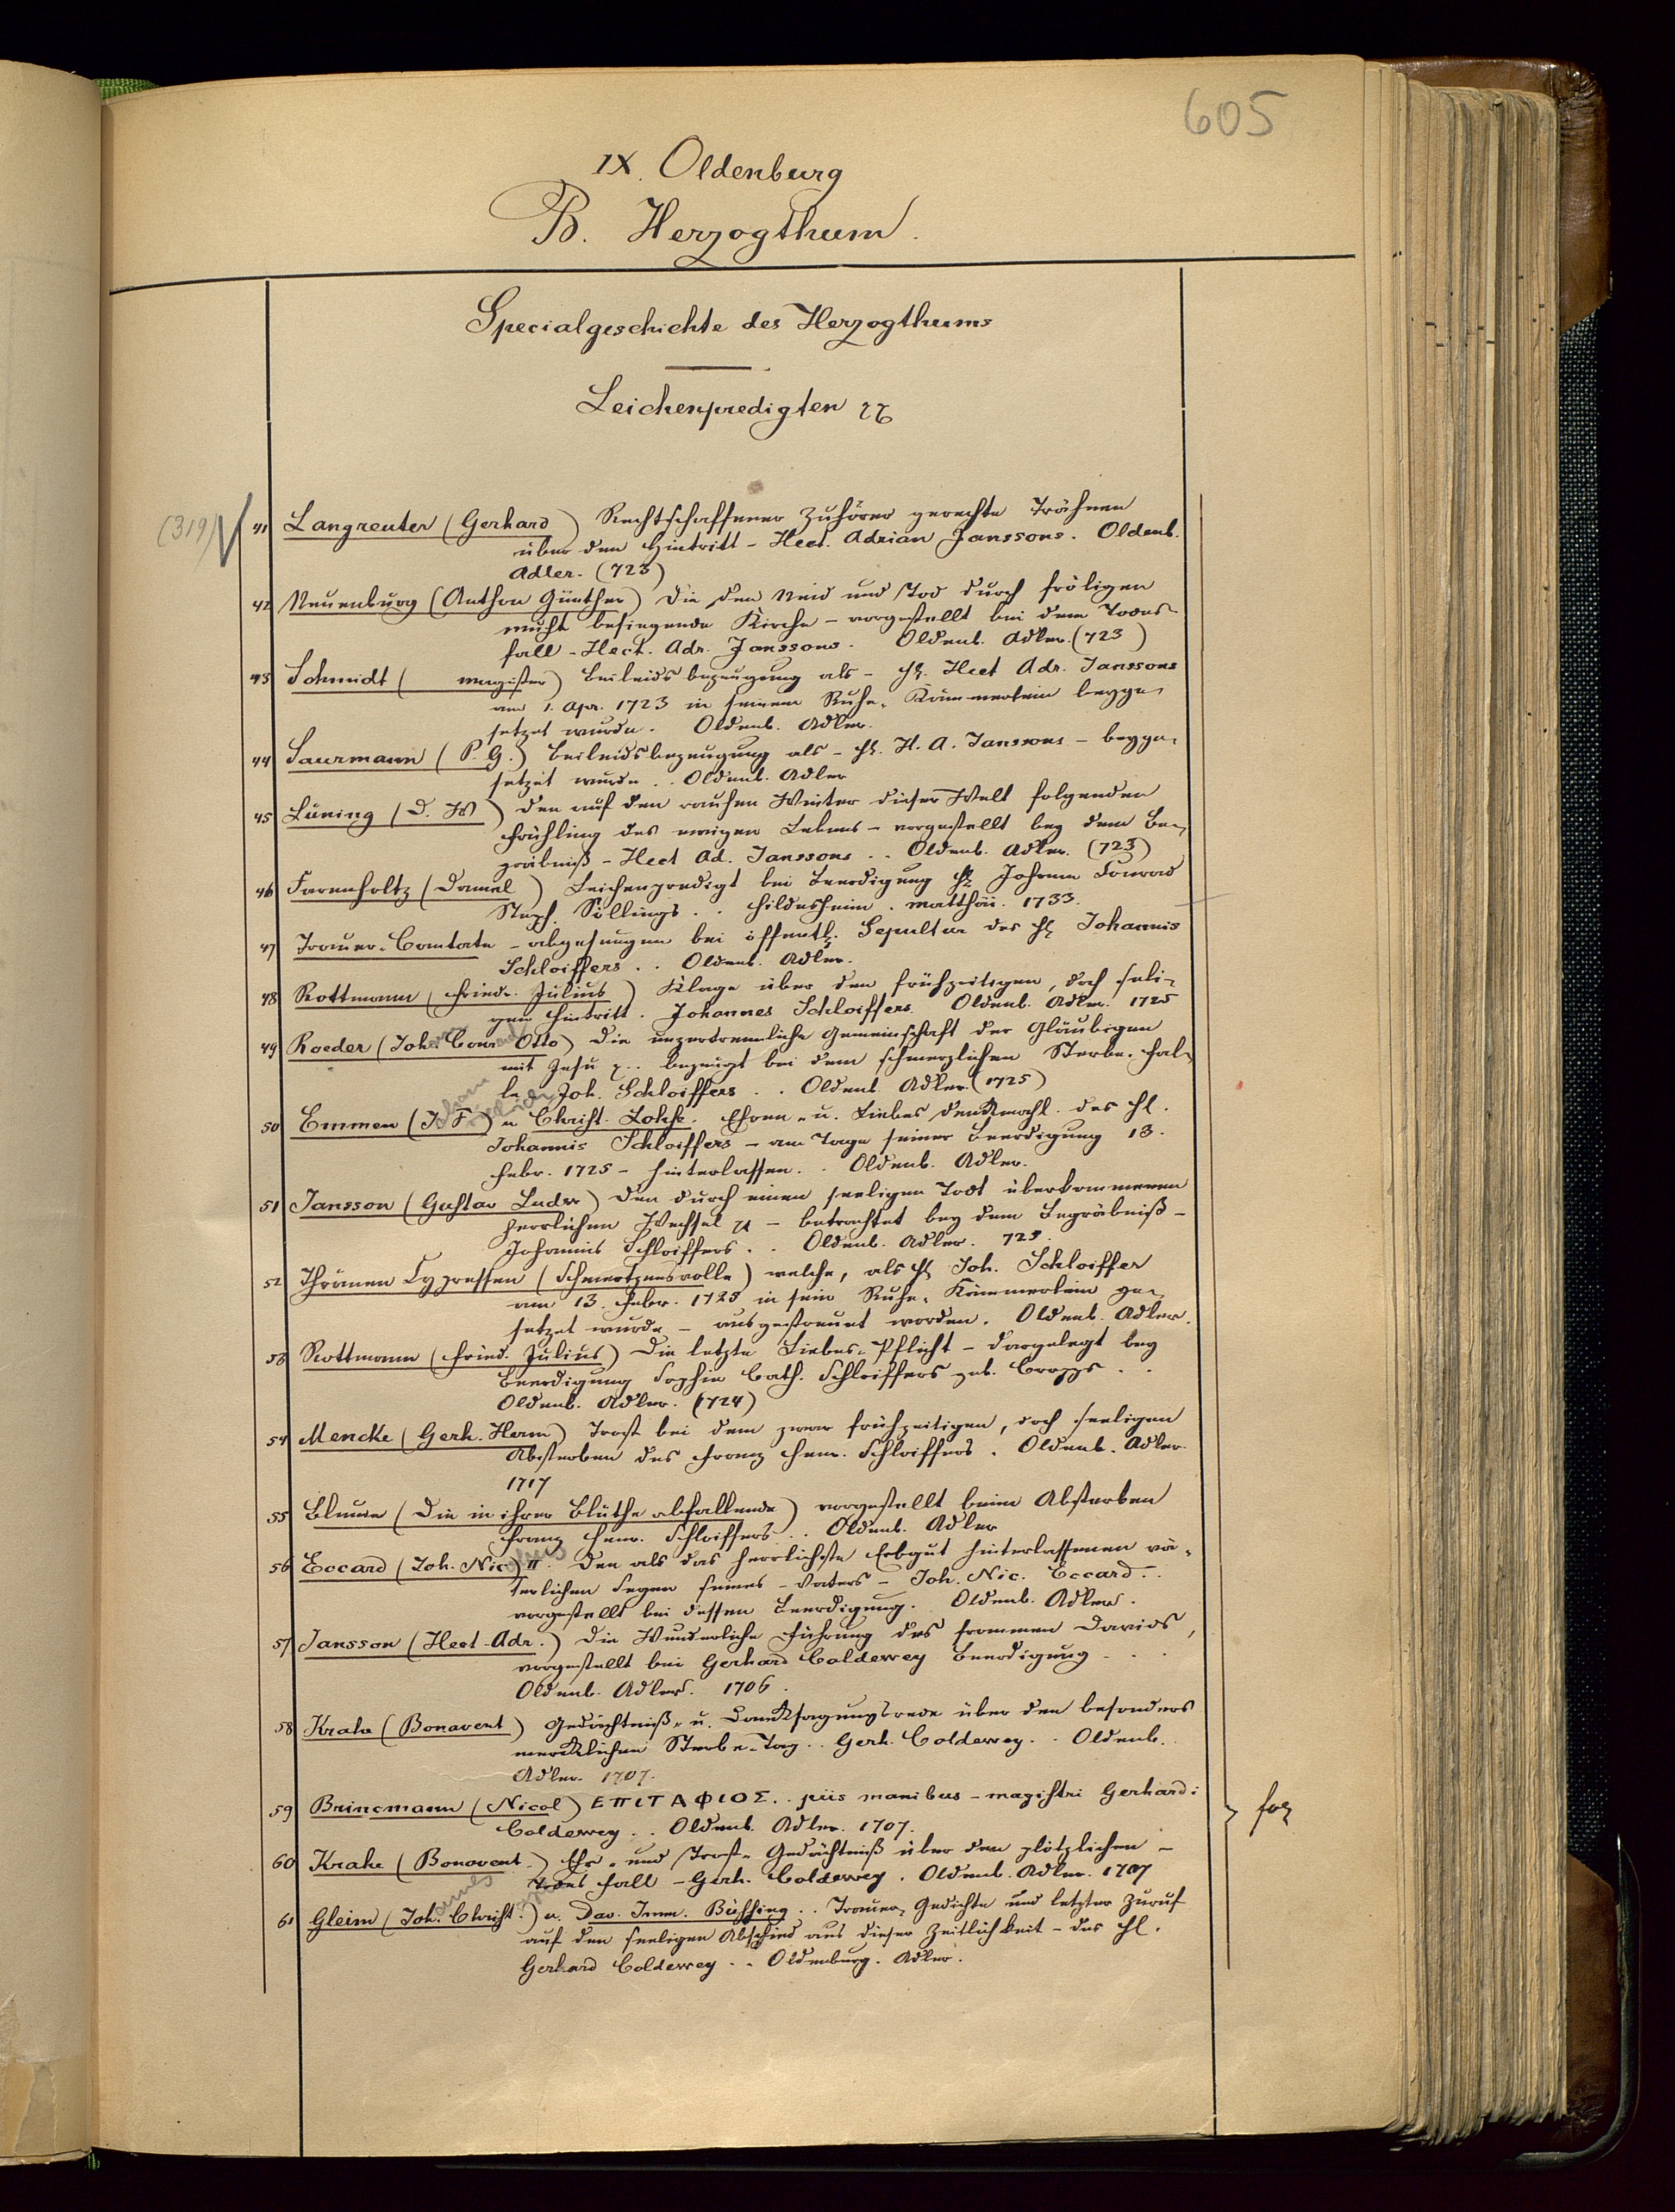 605
IX. Oldenburg
B. Herzogthum.
Specialgeschichte des Herzogthums
Leichenpredigten
(319)
41 Langreuter (Gerhard) Rechtschaffener Zuhörer gerechte Trähnen
über den Hintritt - Hect. Adrian Janssons. Oldenb.
Adler. (723)
42 Neuenburg (Anthon Günther) Die den Neid und Tod durch fröligen
muht besiegende Kirche - vorgestellt bei dem Todes-
fall - Hect. Adr. Janssons. Oldenb. Adler. (723)
43 Schmidt ( magister) Beileidsbezeugung als - H. Hect Adr. Janssons
am 1. Apr. 1723 in seinem Ruhe-Kämmerlein beyge-
setzet wurde. Oldenb. Adler.
44 Saurmann (P. G.) Beileidsbezeugung als - H. H. A. Janssons - beyge-
setzet wurde .. Oldenb. Adler
45 Lüning (D. W) Den auf den rauhen Winter dieser Welt folgenden
Frühling des ewigen Lebens - vorgestellt bey dem Be-
gräbniß - Hect Ad. Janssons .. Oldenb. Adler. (723)
46 Farenholtz (Daniel) Leichenpredigt bei Beerdigung H. Johann Conrad
Steph. Söllings .. Hildesheim. Matthäi. 1733.
47 Trauer-Cantate - abgesungen bei öffentl. Sepultur des H. Johannis
Schloiffers .. Oldenb. Adler.
48 Rottmann (Friedr. Julius) Klage über den frühzeitigen, doch seli-
gen Hintritt. Johannes Schloiffers. Oldenb. Adler. 1725
49 Roeder (Joh. Conr. Otto) Die unzertrennliche Gemeinschaft der Gläubigen
mit Jesu .. bezeugt bei dem schmerzlichen Sterbe-Fal-
le Joh. Schloiffers .. Oldenb. Adler. (1725)
50 Emmen (J. F.) u Christ. Lohse. Ehren- u. Liebes Denkmahl des H.
Johannis Schloiffers - am Tage seiner Beerdigung 13.
Febr. 1725 - hinterlassen .. Oldenb. Adler.
51 Jansson (Gustav Ludw) Den durch einen seeligen Todt überkommenen
herrlichen Wechsel - betrachtet bey dem Begräbniß -
Johannis Schloiffers .. Oldenb. Adler. 725.
52 Thränen Cypressen (Schmertzensvolle) welche, als H. Joh. Schloiffer
am 13. Febr. 1725 in sein Ruhe-Kämmerlein ge-
setzet wurde - ausgestreuet worden. Oldenb. Adler.
53 Rottmann (Fried. Julius) Die letzte Liebes-Pflicht - dargelegt bey
Beerdigung Sophie Cath. Schloiffers geb. Cropps ..
Oldenb. Adler. (724)
54 Mencke (Gerh. Herm) Trost bei dem zwar frühzeitigen, doch seeligen
Absterben des Franz Henr. Schloiffers. Oldenb. Adler.
1717
55 Blume (Die in ihrer Blüthe abfallende) vorgestellt beim Absterben
Franz Henr. Schloiffers .. Oldenb. Adler
56 Eccard (Joh. Nicolaus) II. Den als das herrlichste Erbgut hinterlassenen vä-
terlichen Segen seines - Vaters - Joh. Nic. Eccard ..
vorgestellt bei dessen Beerdigung. Oldenb. Adler.
57 Jansson (Hect-Adr.) Die Wunderliche Führung des frommen Davids,
vorgestellt bei Gerhard Coldewey Beerdigung ...
Oldenb. Adler. 1706.
58 Krahe (Bonavent) Gedächtniß- u. Danksagungsrede über den besonders
mercklichen Sterbe-Tag .. Gerh. Coldewey .. Oldenb.
Adler. 1707.
59 Brincmann (Nicol) ΕΠΙΤΑΦΙΟΣ .. piis manibus - magistri Gerhardi
Coldewey .. Oldenb. Adler. 1707.
60 Krahe (Bonavent.) Ehr- und Trost-Gedächtniß über den plötzlichen -
Todes Fall - Gerh. Coldewey. Oldenb. Adler. 1707
61 Gleim (Joh. Christ.) u. Dav. Imm. Büssing .. Trauer-Gedichte und letzter Zuruf
auf den seeligen Abschied aus dieser Zeitlichkeit - des H.
Gerhard Coldewey .. Oldenburg. Adler.
fol